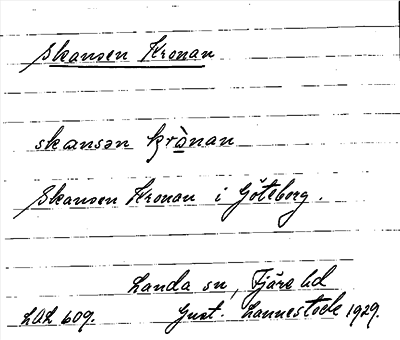 Skansen Kronan
skansən krò̱nan
Skansen Kronan i Göteborg.
Landa sn, Fjäre hd
LAL 609. Gust. Lannestock 1929.